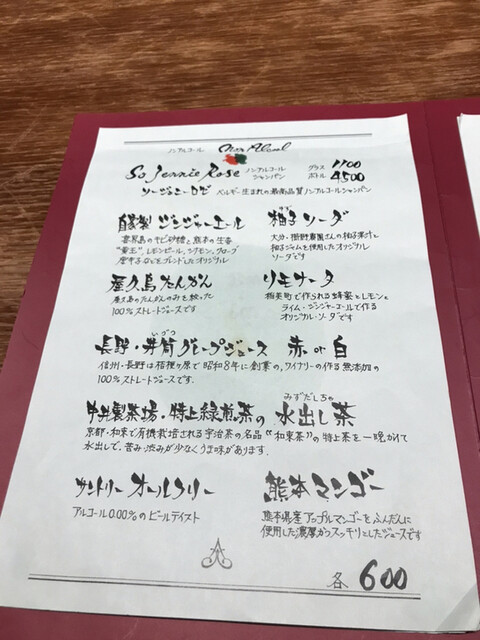 ノンアルコール Non Alcool
So Jennie Rose ノンアルコール シャンパン グラス 1100 ボトル 4500
ソー・ジェニー ロゼ ベルギー生まれの最高品質ノンアルコールシャンパン
自家製 ジンジャーエール
喜界島のキビ砂糖と熊本の生姜
レモンピール、シナモン、クローブ
唐辛子などをブレンドしたオリジナル
ゆず
柚子ソーダ
大分・櫛野農園さんの柚子果汁と
柚子ジャムを使用したオリジナル
ソーダです
屋久島たんかん
屋久島のたんかんのみを搾った
100%ストレートジュースです
リモナータ
で作られる蜂蜜とレモンと
ライム・ジンジャーコールで作る
オリジナル・ソーダです
いづつ
長野・井筒グレープジュース 赤or白
信州・長野は桔梗ヶ原で昭和8年に創業の、ワイナリーの作る無添加の
100%ストレートジュースです.
みずだしちゃ
中井製茶場・特上緑煎茶の水出し茶
京都・和束で有機栽培される宇治茶の名品 “和束茶” の特上茶を一晩かけて
水出しで、苦み・渋みが少なくうま味があります.
サントリー オールフリー
アルコール0.00%のビールテイスト
熊本マンゴー
熊本県産アップルマンゴーをふんだんに
使用した濃厚かつスッキリとしたジュースです
各 600